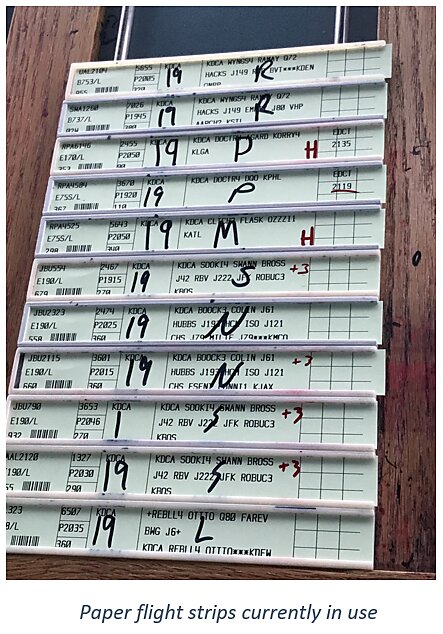 UAL2104 5655 KDCA KDCA WYNGS4 RAMAY Q72
B753/L P2005 19 HACKS J149 R BVT***KDEN
SWA1260 2026 KDCA KDCA WYNGS4 RAMAY Q72
B737/L P1945 19 HACKS J149 R J80 VHP
RPA6146 2455 KDCA KDCA DOCTR4 AGARD KORRY4 EDCT
E170/L P2050 19 KLGA P H 2135
RPA4504 3670 KDCA KDCA DOCTR4 DQO KPHL EDCT
E75S/L P1920 19 P 2119
RPA4525 5643 KDCA KDCA FLASK OZZZI1
E75S/L P2050 19 KATL M H
298 300
JBU554 2467 KDCA KDCA SOOKI4 SWANN BROSS +3
E190/L P1915 19 J42 RBV J222 S JFK ROBUC3
679 270 KBOS
JBU2323 2474 KDCA KDCA BOOCK3 COLIN J61
E190/L P2025 19 HUBBS J193 HCM ISO J121
558 360 N
JBU2115 3601 KDCA KDCA BOOCK3 COLIN J61 +3
E190/L P2015 19 HUBBS J193 HCM ISO J121
660 360 N KJAX
JBU790 3653 KDCA KDCA SOOKI4 SWANN BROSS +3
E190/L P2046 1 J42 RBV J222 S JFK ROBUC3
932 270 KBOS
AAL2120 1327 KDCA KDCA SOOKI4 SWANN BROSS +3
E190/L P2030 19 J42 RBV J222 S JFK ROBUC3
290 KBOS
323 6507 KDCA +REBLL4 OTTTO Q80 FAREV
E190/L P2035 19 BWG J6+ L
360 KDCA REBLL4 OTTTO***KDFW
Paper flight strips currently in use